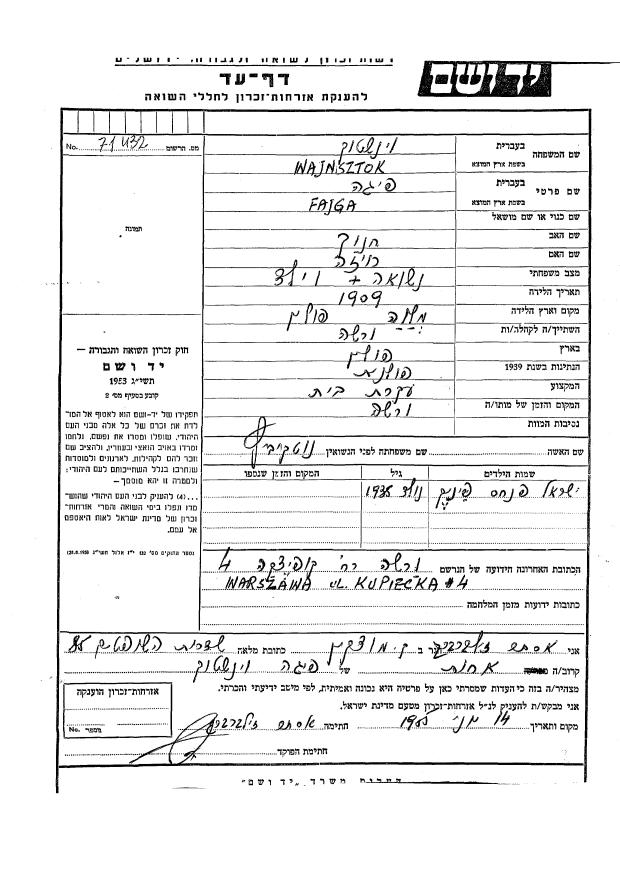 רשות זכרון לשואה ולגבורה, ירושלים
יד ושם
דף-עד
להענקת אזרחות-זכרון לחללי השואה
No. 71432 מס. תרשום
שם המשפחה בעברית וינשטוק
בשפת ארץ המוצא WAJNSZTOK
שם פרטי בעברית פיגה
בשפת ארץ המוצא FAJGA
שם כנוי או שם מושאל
תמונה
שם האב חנוך
שם האם רויזה
מצב משפחתי נשואה + וילד
תאריך הלידה 1909
מקום וארץ הלידה פולין
השתייך/ה לקהלה/ות ורשה
בארץ פולין
הנתינות בשנת 1939 פולנית
המקצוע עקרת בית
המקום והזמן של מותו/ה ורשה
נסיבות המוות
חוק זכרון השואה והגבורה —
יד ושם
תשי"ג 1953
קובע בסעיף מס' 2
תפקידו של יד-ושם הוא לאסוף אל המו-
לדת את זכרם של כל אלה מבני העם
היהודי, שנפלו ומסרו את נפשם, נלחמו
ומרדו באויב הנאצי ובעוזריו, ולהציב שם
וזכר להם לקהילות, לארגונים ולמוסדות
שנחרבו בגלל השתייכותם לעם היהודי;
ולמטרה זו יהא מוסמך —
...(4) להעניק לבני העם היהודי שהוש-
מדו ונפלו בימי השואה והמרי אזרחות-
זכרון של מדינת ישראל לאות היאספם
אל עמם.
שם האשה שם משפחתה לפני הנשואין
שמות הילדים גיל המקום והזמן שנספו
ישראל פנחס נולד 1935
הכתובת האחרונה הידועה של הנרשם ורשה רח' קופיצקה 4
WARSZAWA UL. KUPIECKA #4
כתובות ידועות מזמן המלחמה
אני אסתר זילברברג הגר ב ק. מוצקין כתובת מלאה שדרות השופטים
קרוב/ה אחות של פיגה וינשטוק
מצהיר/ה בזה כי העדות שמסרתי כאן על פרטיה היא נכונה ואמיתית, לפי מיטב ידיעתי והכרתי.
אני מבקש/ת להעניק לנ"ל אזרחות-זכרון מטעם מדינת ישראל.
מקום ותאריך 14 מני 1955 חתימה אסתר זילברברג
חתימת הפוקד
אזרחות-זכרון הוענקה
מספר No.
הערות משרד "יד ושם"